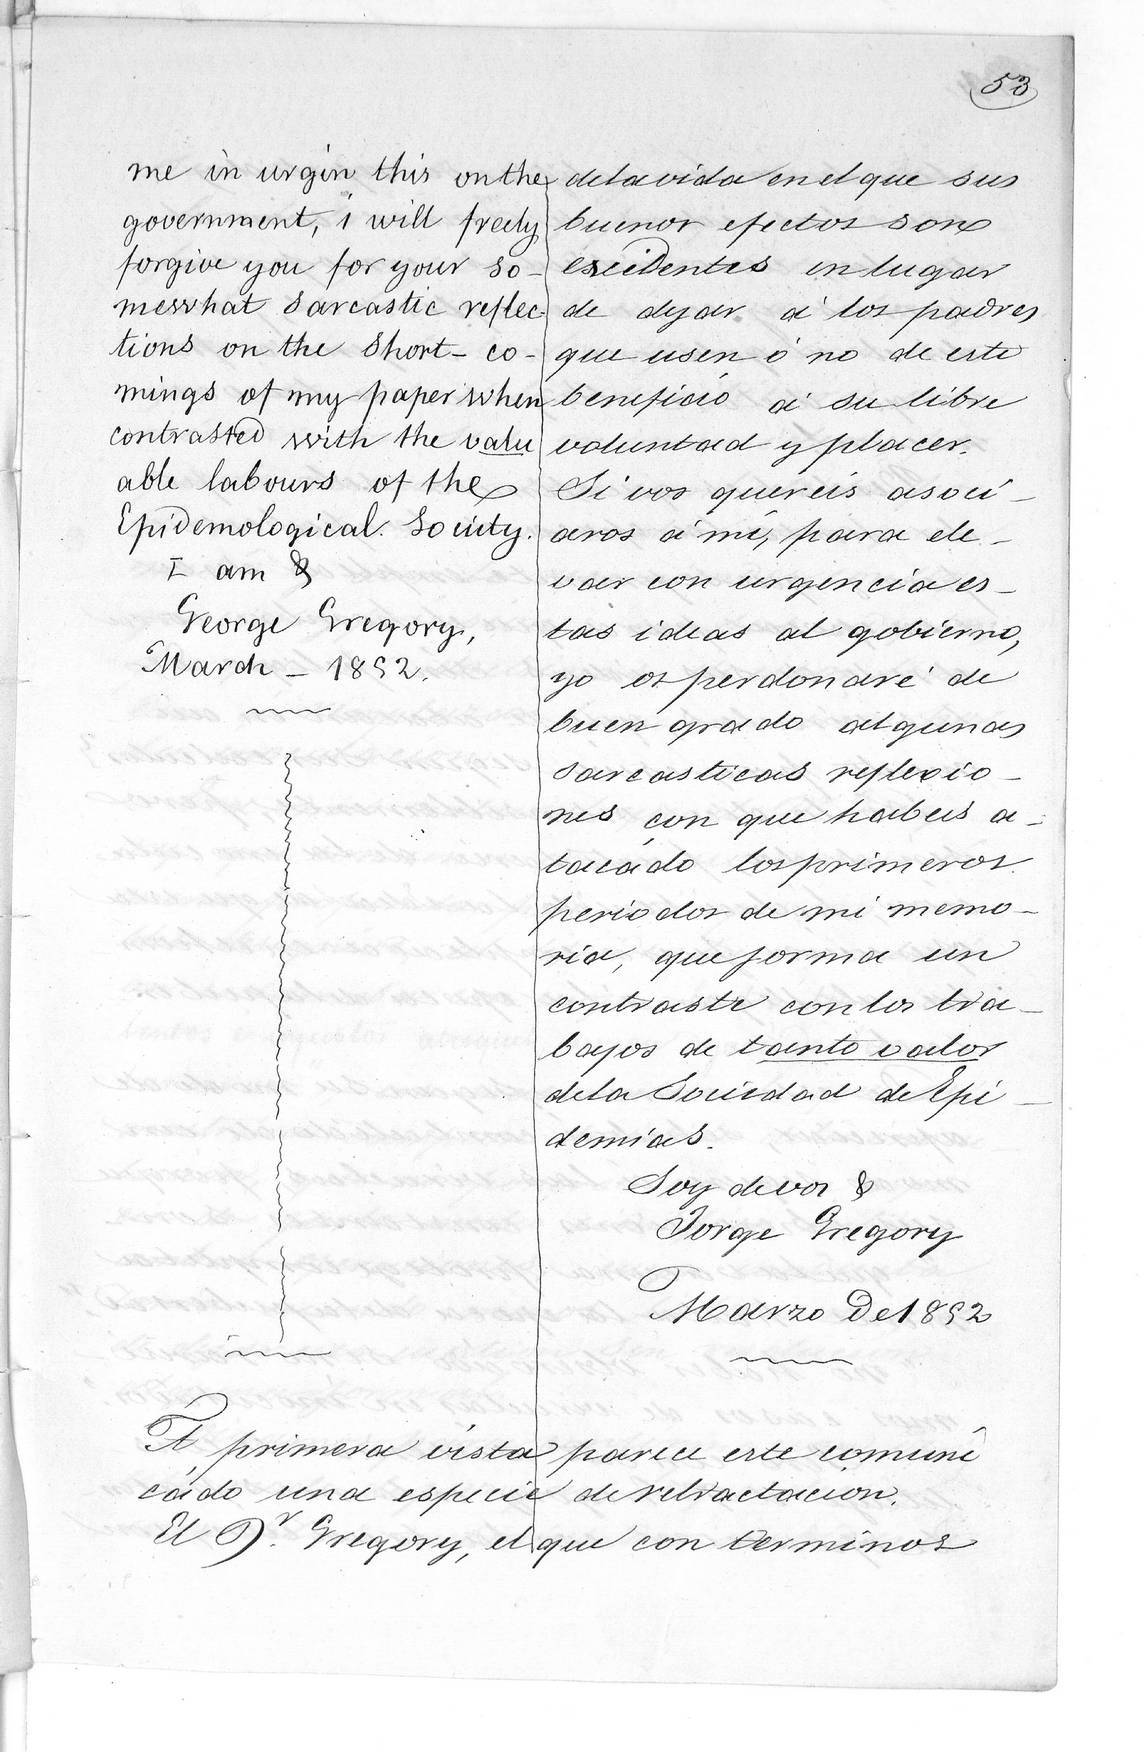 53
me in urgin this on the
government, i will freely
forgive you for your so-
mewhat sarcastic reflec-
tions on the short-co-
mings of my paper when
contrasted with the valu
able labours of the
Epidemological. Society.
I am &
George Gregory,
March - 1852.
dela vida en el que sus
buenos efectos son
excidentes en lugar
de dejar á los padres
que usen ó no de este
beneficio á su libre
voluntad y placer.
Si vos quereis asoci-
aros á mí, para ele-
var con urgencia es-
tas ideas al gobierno,
yo os perdonaré de
buen grado algunas
sarcasticas reflexio-
nes con que habeis a-
tacádo los primeros
periodos de mi memo-
ria, que forma un
contraste con los tra-
bajos de tanto valor
dela Sociedad de Epi-
demias.
Soy de vos &
Jorge Gregory
Marzo de 1852
A primera vista parece este comuni
cádo una especie de retractacion.
El Dr. Gregory, el que con terminos